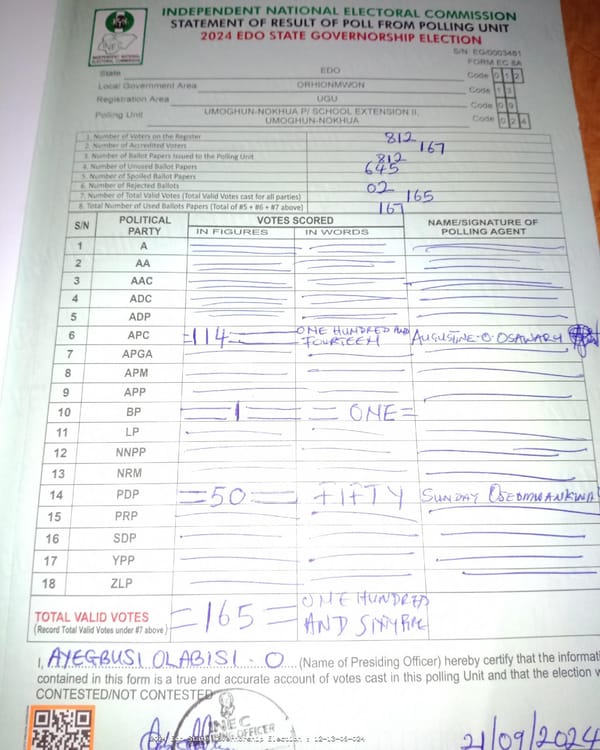 INDEPENDENT NATIONAL ELECTORAL COMMISSION
STATEMENT OF RESULT OF POLL FROM POLLING UNIT
2024 EDO STATE GOVERNORSHIP ELECTION
S/N: EG/0003481
FORM EC 8A
INEC
INDEPENDENT NATIONAL ELECTORAL COMMISSION
State EDO Code 0 1 2
Local Government Area ORHIONMWON Code 1 3
Registration Area UGU Code 0 9
Polling Unit UMOGHUN-NOKHUA P/ SCHOOL EXTENSION II, UMOGHUN-NOKHUA Code 0 2 4
1. Number of Voters on the Register 812
2. Number of Accredited Voters 167
3. Number of Ballot Papers Issued to the Polling Unit 812
4. Number of Unused Ballot Papers 645
5. Number of Spoiled Ballot Papers
6. Number of Rejected Ballots 02
7. Number of Total Valid Votes (Total Valid Votes cast for all parties) 165
8. Total Number of Used Ballots Papers (Total of #5 + #6 + #7 above) 167
S/N POLITICAL PARTY VOTES SCORED NAME/SIGNATURE OF POLLING AGENT
IN FIGURES IN WORDS
1 A
2 AA
3 AAC
4 ADC
5 ADP
6 APC 114 ONE HUNDRED AND FOURTEEN AUGUSTINE-O-OSAWARU
7 APGA
8 APM
9 APP
10 BP 1 = ONE =
11 LP
12 NNPP
13 NRM
14 PDP =50= FIFTY SUNDAY
15 PRP
16 SDP
17 YPP
18 ZLP
TOTAL VALID VOTES =165= ONE HUNDRED AND SIXTY FIVE
(Record Total Valid Votes under #7 above)
I, AYEGBUSI OLABISI. O (Name of Presiding Officer) hereby certify that the informati
contained in this form is a true and accurate account of votes cast in this polling Unit and that the election w
CONTESTED/NOT CONTESTED
INEC
21/09/2024